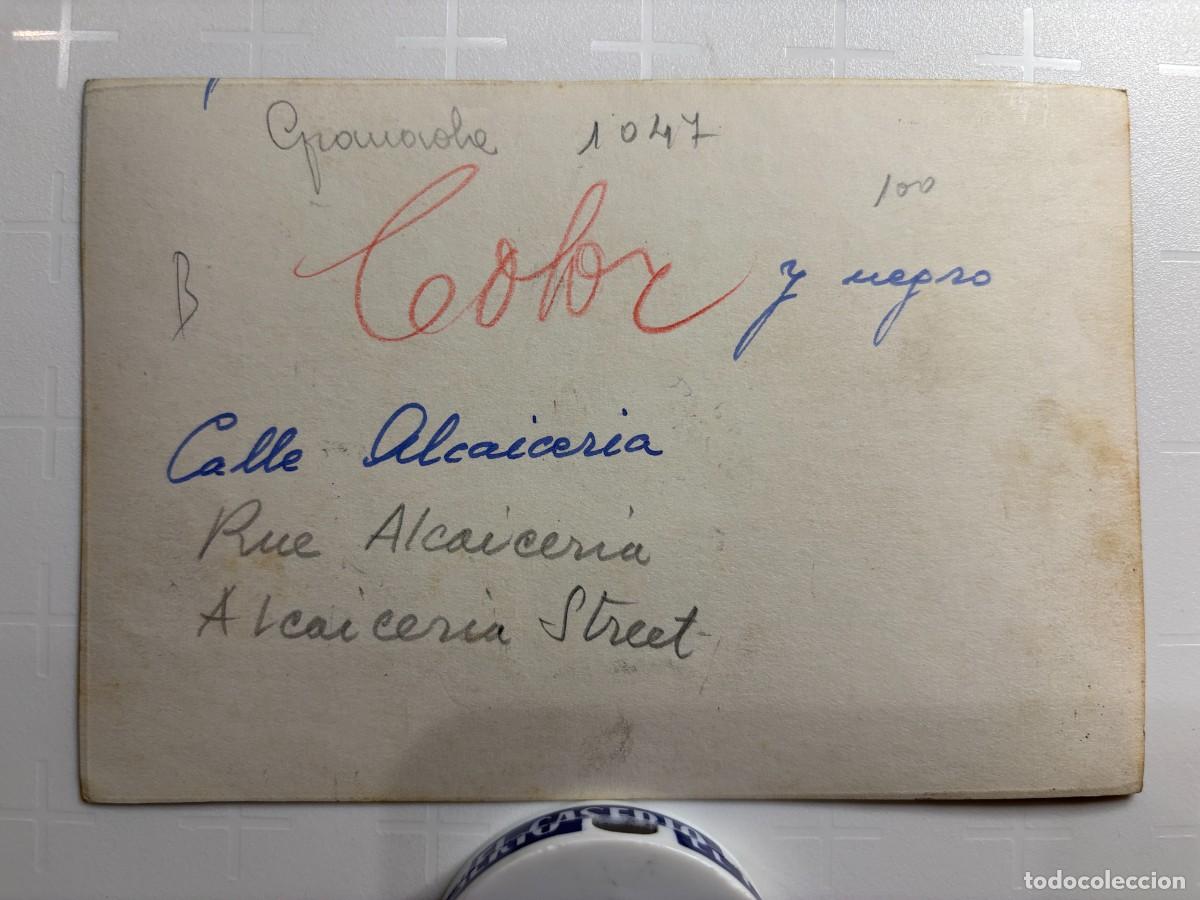 Granada 1047
100
B Color y negro
Calle Alcaiceria
Rue Alcaiceria
Alcaiceria Street
todocoleccion